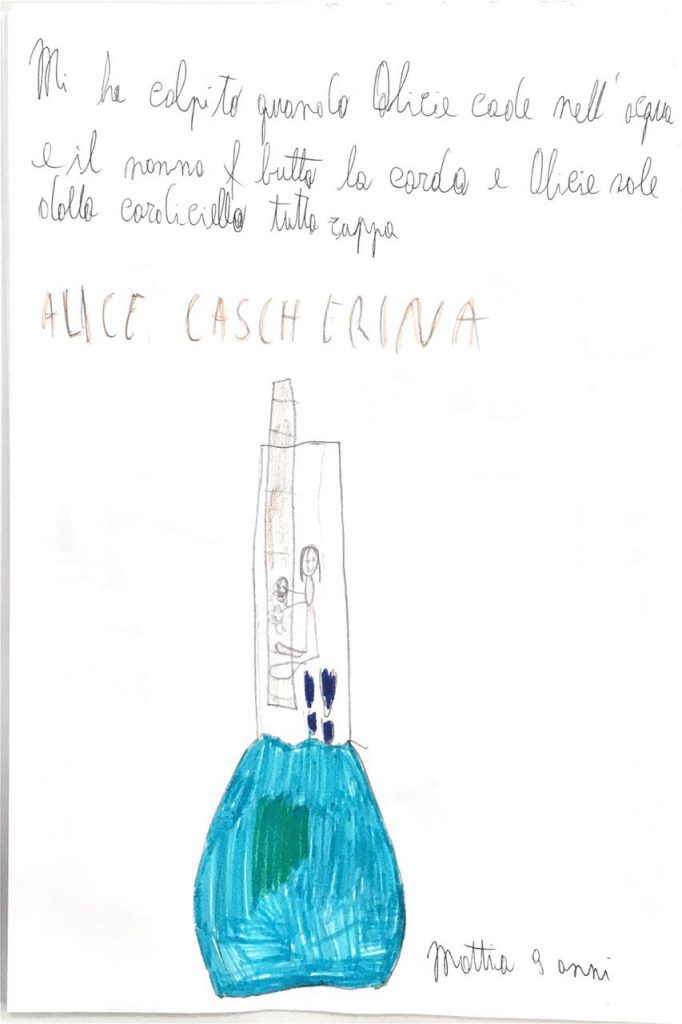 Mi ha colpito quando Alicie cade nell'acqua
e il nonno butta la corda e Alicie sale
dalla cordiciella tutta zuppa
ALICE CASCHERINA
Mattia 9 anni